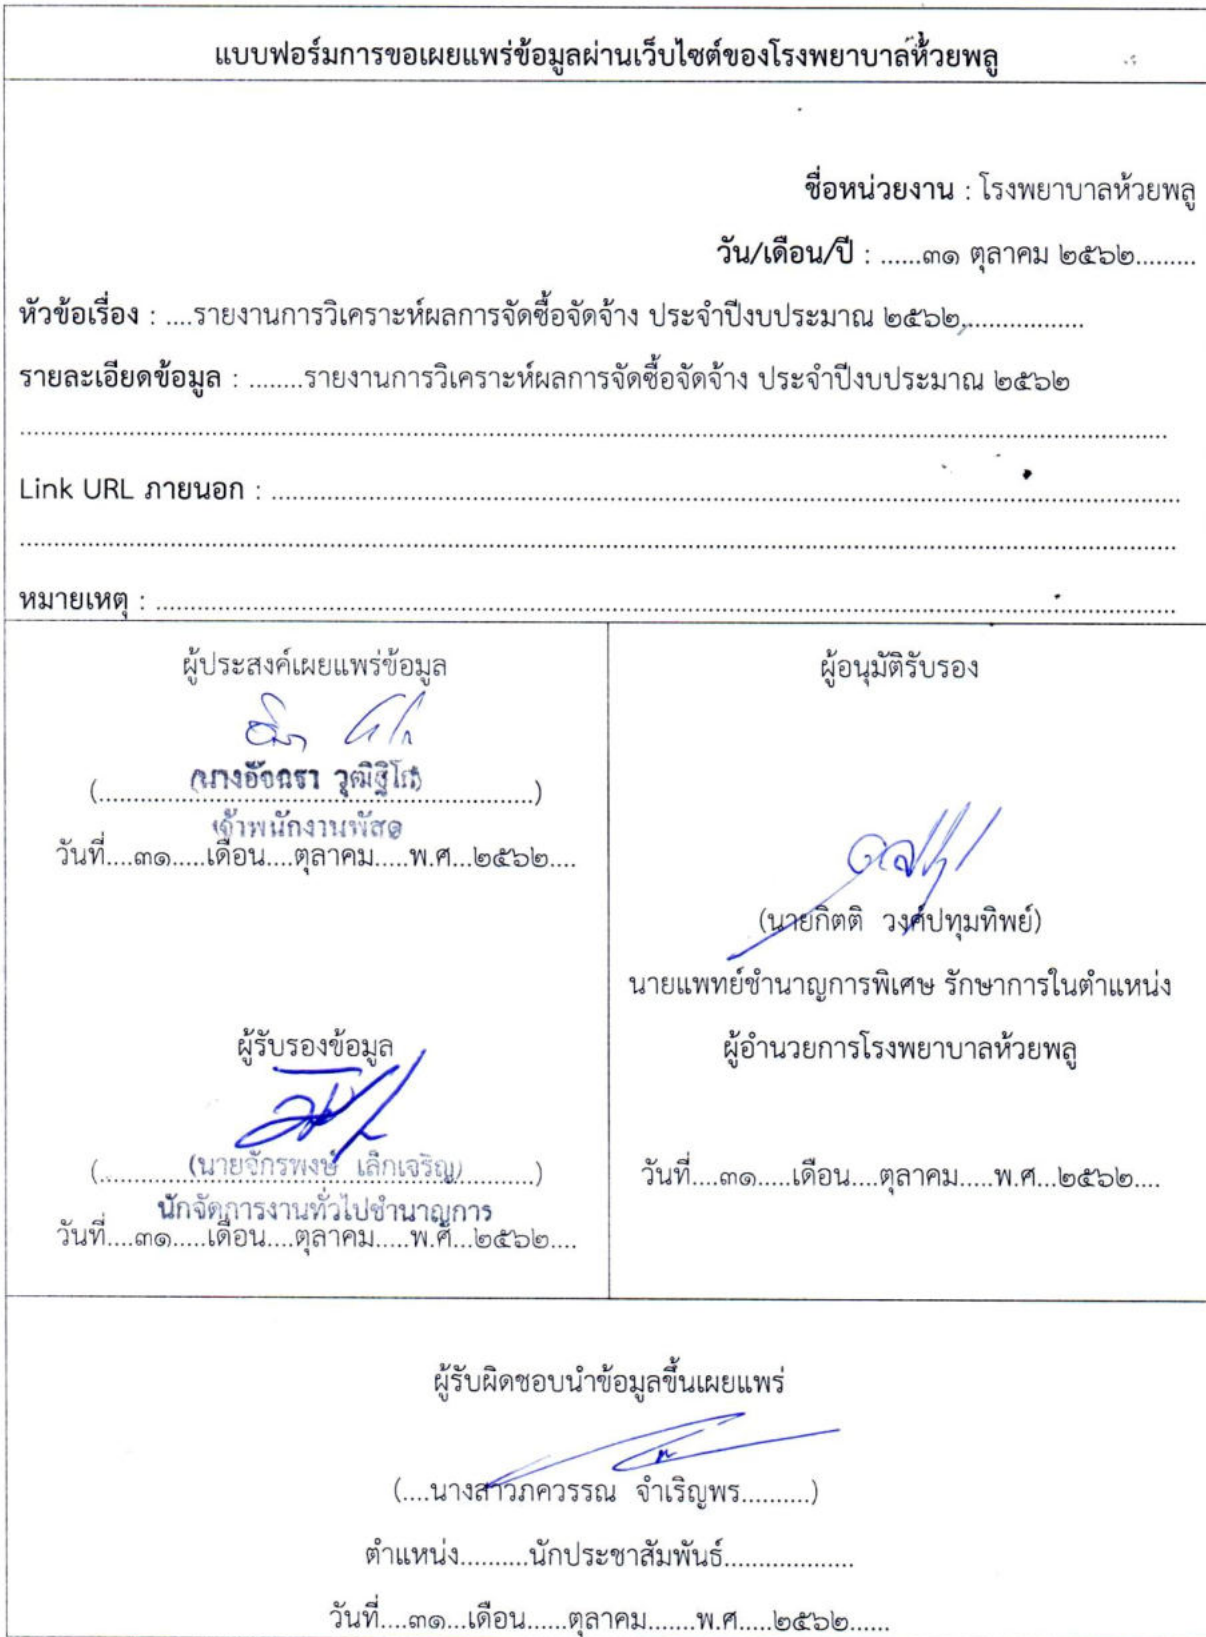 แบบฟอร์มการขอเผยแพร่ข้อมูลผ่านเว็บไซต์ของโรงพยาบาลห้วยพลู
ชื่อหน่วยงาน : โรงพยาบาลห้วยพลู
วัน/เดือน/ปี : ......๓๑ ตุลาคม ๒๕๖๒.........
หัวข้อเรื่อง : ....รายงานการวิเคราะห์ผลการจัดซื้อจัดจ้าง ประจำปีงบประมาณ ๒๕๖๒..................
รายละเอียดข้อมูล : ........รายงานการวิเคราะห์ผลการจัดซื้อจัดจ้าง ประจำปีงบประมาณ ๒๕๖๒
Link URL ภายนอก :
หมายเหตุ :
ผู้ประสงค์เผยแพร่ข้อมูล
(นางอัจฉรา วุฒิฐิโก)
เจ้าพนักงานพัสดุ
วันที่....๓๑.....เดือน....ตุลาคม.....พ.ศ...๒๕๖๒....
ผู้รับรองข้อมูล
(นายจักรพงษ์ เล็กเจริญ)
นักจัดการงานทั่วไปชำนาญการ
วันที่....๓๑.....เดือน....ตุลาคม.....พ.ศ...๒๕๖๒....
ผู้อนุมัติรับรอง
(นายกิตติ วงศ์ปทุมทิพย์)
นายแพทย์ชำนาญการพิเศษ รักษาการในตำแหน่ง
ผู้อำนวยการโรงพยาบาลห้วยพลู
วันที่....๓๑.....เดือน....ตุลาคม.....พ.ศ...๒๕๖๒....
ผู้รับผิดชอบนำข้อมูลขึ้นเผยแพร่
(....นางสาวภควรรณ จำเริญพร..........)
ตำแหน่ง..........นักประชาสัมพันธ์...................
วันที่....๓๑...เดือน......ตุลาคม.......พ.ศ.....๒๕๖๒......